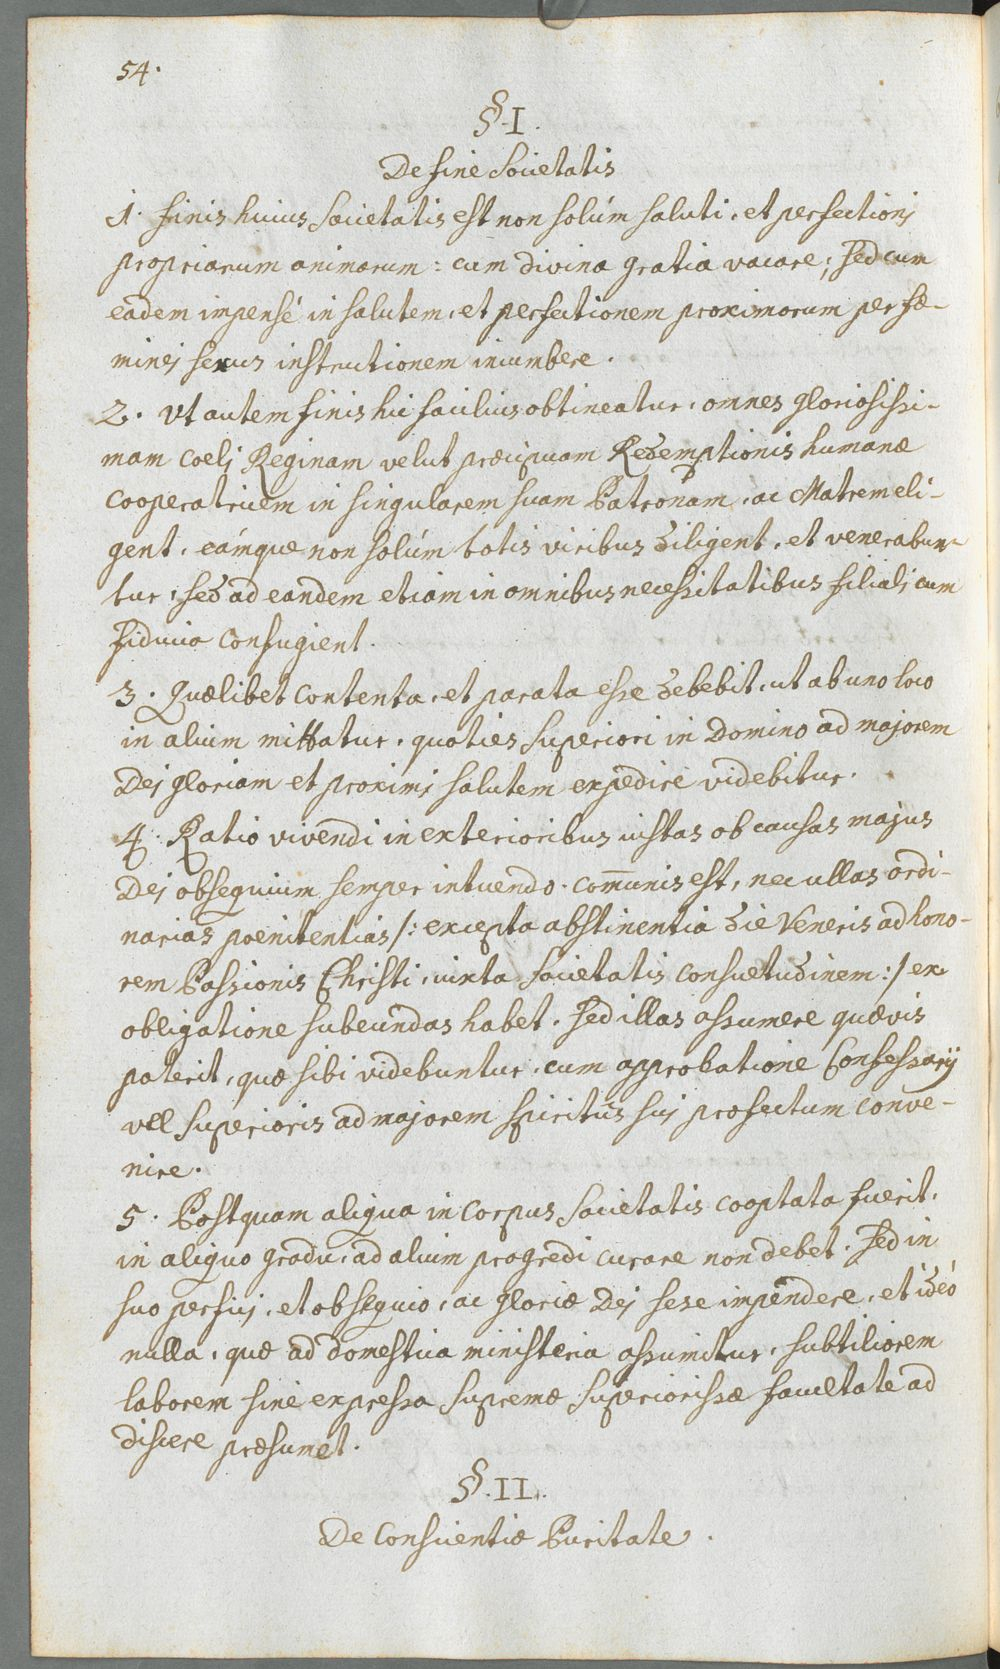 54.
§.I.
De fine Societatis
1. finis huius Societatis est non solúm saluti, et perfectionj
propriarum animarum: cum divina gratia vacare; sed cum
eadem impensé in salutem, et perfectionem proximorum per fæ-
minej sexus instructionem incumbere.
2. Ut autem finis hic facilius obtineatur, omnes gloriosissi-
mam Coelj Reginam velut præcipuam Redemptionis humanæ
cooperatricem in singularem suam Patronam, ac Matrem eli-
gent, eámque non solúm totis viribus diligent, et venerabun-
tur, sed ad eandem etiam in omnibus necessitatibus filialj cum
fiducia confugient.
3. Quælibet contenta, et parata esse debebit, ut ab uno loco
in alium mittatur, quoties Superiori in Domino ad majorem
Dej gloriam et proximj salutem expedire videbitur.
4. Ratio vivendi in exterioribus iustas ob causas majus
Dej obsequium semper intuendo. com̄unis est, nec ullas ordi-
narias poenitentias /: excepta abstinentia die Veneris ad hono-
rem Passionis Christi, iuxta Societatis consuetudinem :/ ex
obligatione subeundas habet. Sed illas assumere quævis
poterit, quæ sibi videbuntur, cum approbatione Confessarij
vel Superioris ad majorem spiritus suj profectum conve-
nire.
5. Postquam aliqua in Corpus Societatis cooptata fuerit,
in aliquo gradu, ad alium progredi curare non debet. Sed in
suo perficj, et obsequio, ac gloriæ Dej sese impendere, et ideó
nulla, quæ ad domestica ministeria assumitur, subtiliorem
laborem sine expressa supremæ Superiorissæ facultate ad
discere præsumet.
§.II.
De Conscientiæ Puritate.